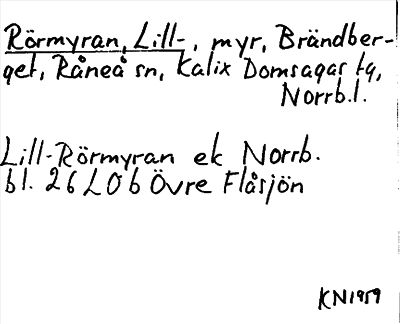 Rörmyran, Lill-, myr, Brändber-
get, Råneå sn, Kalix Domsagas tg,
Norrb.l.
Lill-Rörmyran ek Norrb.
bl. 26 L 0 b Övre Flåsjön
KN1959